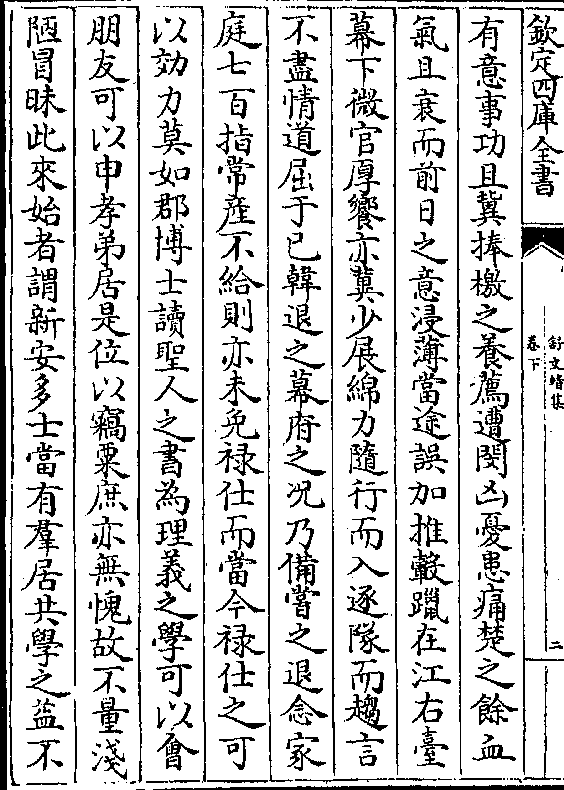 欽定四庫全書
舒文靖集
卷下
二
有意事功且冀捧檄之養薦遭閔凶憂患痛楚之餘血
氣且衰而前日之意浸薄當途誤加推轂躐在江右臺
幕下微官厚饗亦冀少展綿力隨行而入逐隊而趨言
不盡情道屈于已韓退之幕府之况乃備嘗之退念家
庭七百指常産不給則亦未免禄仕而當今禄仕之可
以効力莫如郡博士讀聖人之書為理義之學可以會
朋友可以申孝弟居是位以竊粟庶亦無愧故不量淺
陋冒昧此來始者謂新安多士當有羣居共學之益不